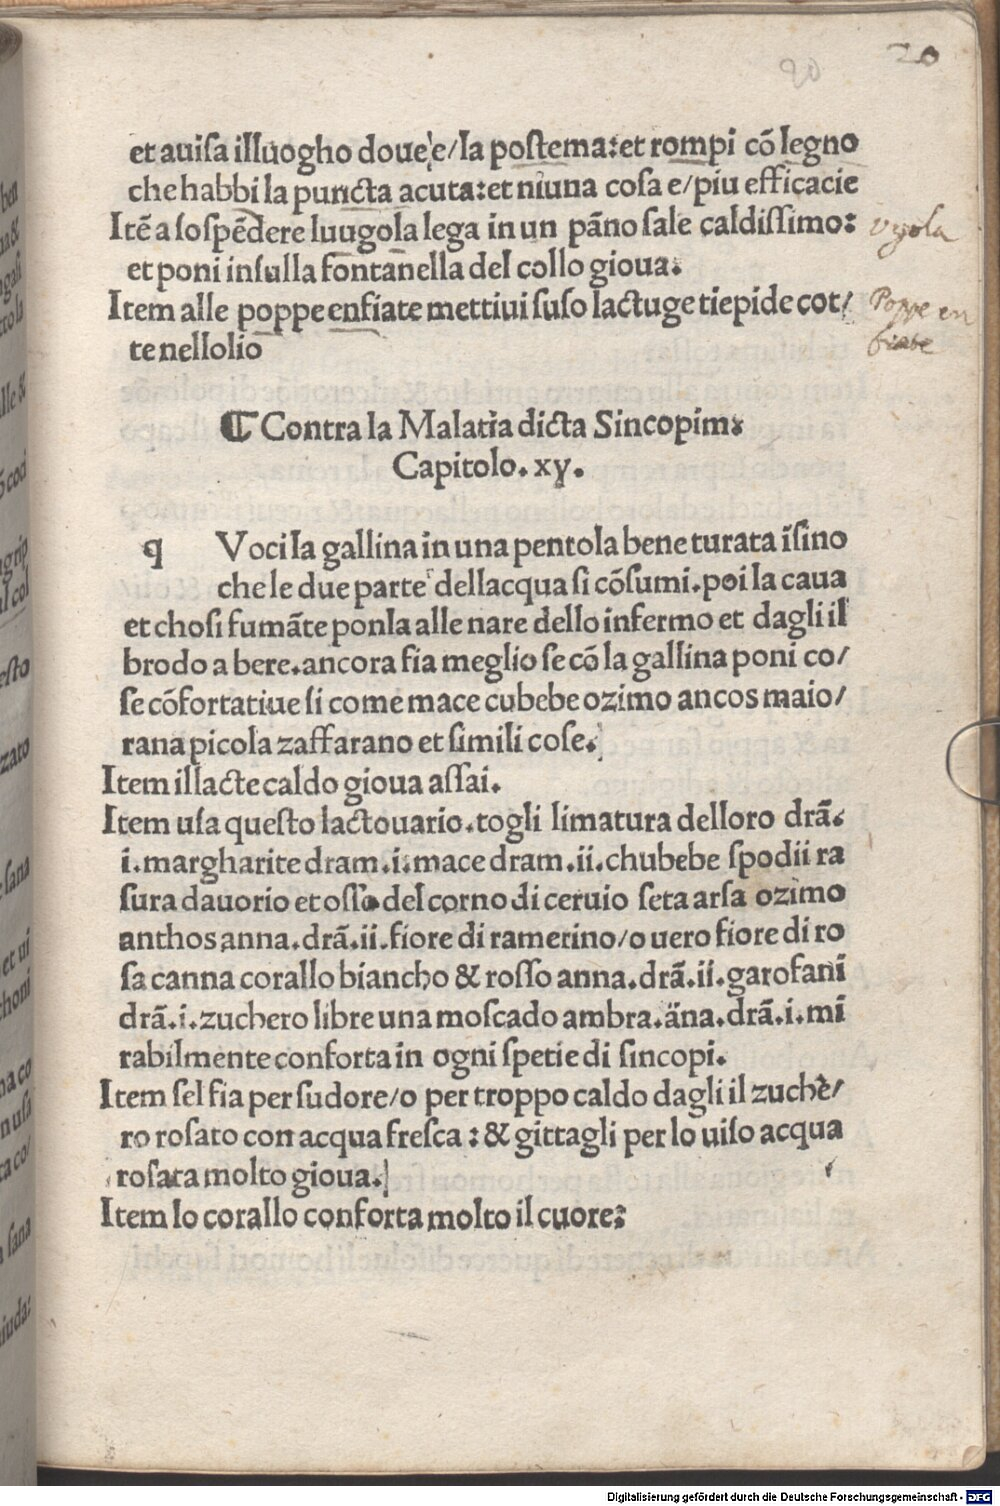 20
20
et auisa illuogho doue e/la postema: et rompi cō legno
che habbi la puncta acuta: et niuna cosa e/piu efficacie
Itē a sospēdere luugola lega in un pāno sale caldissimo:
et poni insulla fontanella del collo gioua:
Item alle poppe enfiate mettiui suso lactuge tiepide cot/
te nellolio
Vgola
Poppe en
fiate
⁋ Contra la Malatia dicta Sincopim:
Capitolo. xy.
q Voci la gallina in una pentola bene turata īsino
che le due parte dellacqua si cōsumi. poi la caua
et chosi fumāte ponla alle nare dello infermo et dagli il
brodo a bere. ancora fia meglio se cō la gallina poni co/
se cōfortatiue si come mace cubebe ozimo ancos maio/
rana picola zaffarano et simili cose.
Item illacte caldo gioua assai.
Item usa questo lactouario. togli limatura delloro drā.
i. margharite dram. i. mace dram. ii. chubebe spodii ra
sura dauorio et osso del corno di ceruio seta arsa ozimo
anthos anna. drā. ii. fiore di ramerino/o uero fiore di ro
sa canna corallo biancho & rosso anna. drā. ii. garofani
drā. i. zuchero libre una moscado ambra. āna. drā. i. mi
rabilmente conforta in ogni spetie di sincopi.
Item sel fia per sudore/o per troppo caldo dagli il zuche/
ro rosato con acqua fresca: & gittagli per lo uiso acqua
rosata molto gioua.
Item lo corallo conforta molto il cuore:
Digitalisierung gefördert durch die Deutsche Forschungsgemeinschaft - DFG